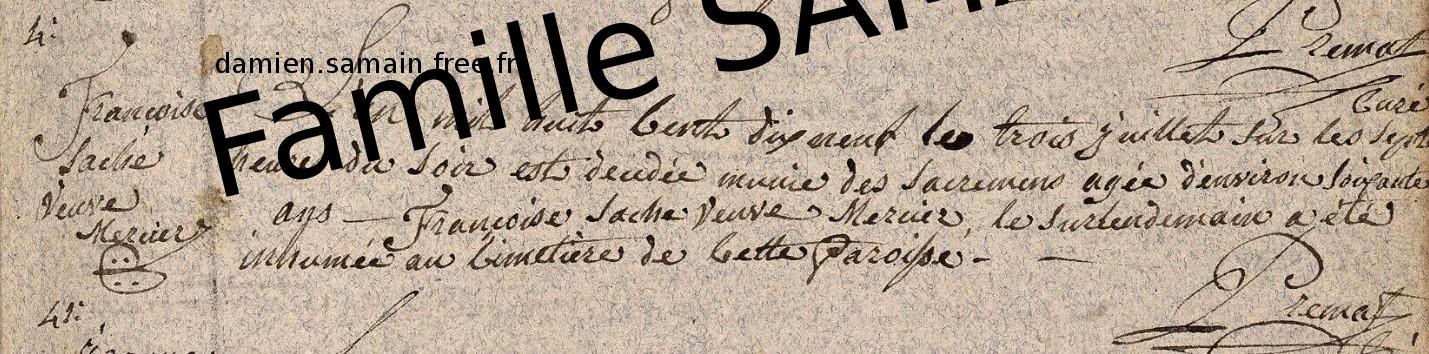 4.
Premat
Curé
damien.samain free.fr
Famille SAM
Françoise
Sache
Veuve
Mercier
L'an mil huit Cent dix neuf le trois juillet sur les sept
heures du Soir est decedée munie des Sacremens agée d'environ Soixante
ans — Françoise Sache Veuve Mercier, le Surlendemain a été
inhumée au Cimetière de Cette Paroisse - —
Premat